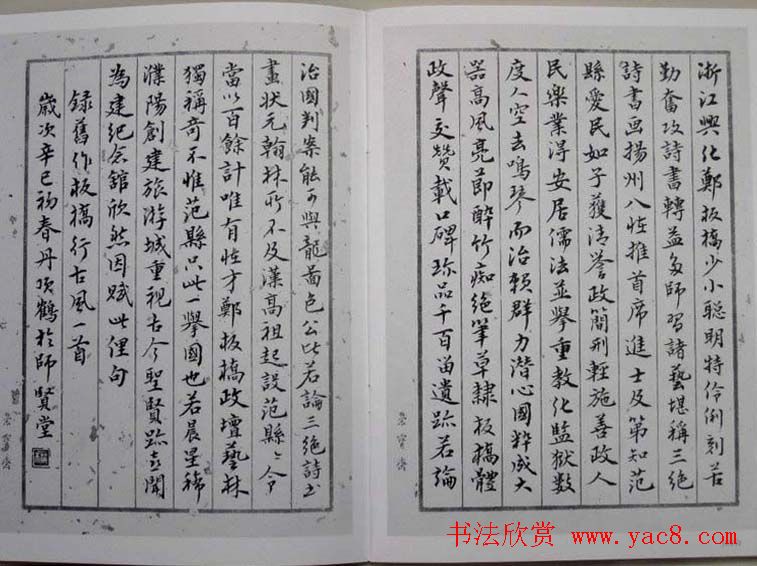 浙江興化鄭板橋少小聰明特伶俐刻苦
勤奮攻詩書轉益多師習諸藝堪稱三絕
詩書画揚州八怪推首席進士及第知范
縣愛民如子獲清譽政簡刑輕施善政人
民樂業得安居儒法並舉重教化監獄數
度人空去鳴琴而治賴群力潛心國粹成大
器高風亮節醉竹痴絕筆草隸板橋體
政聲交贊載口碑珍品千百留遺跡若論
治國判案能可與龍圖包公比若論三絕詩書
畫狀元翰林所不及漢高祖起設范縣縣令
當以百餘計唯有怪才鄭板橋政壇藝林
獨稱奇不惟范縣只此一舉國也若晨星稀
濮陽創建旅游城重視古今聖賢跡喜聞
為建紀念舘欣然因賦此俚句
録舊作板橋行古風一首
歲次辛巳初春丹頂鶴於師賢堂
榮寶齋
榮寶齋
书法欣赏:www.yac8.com